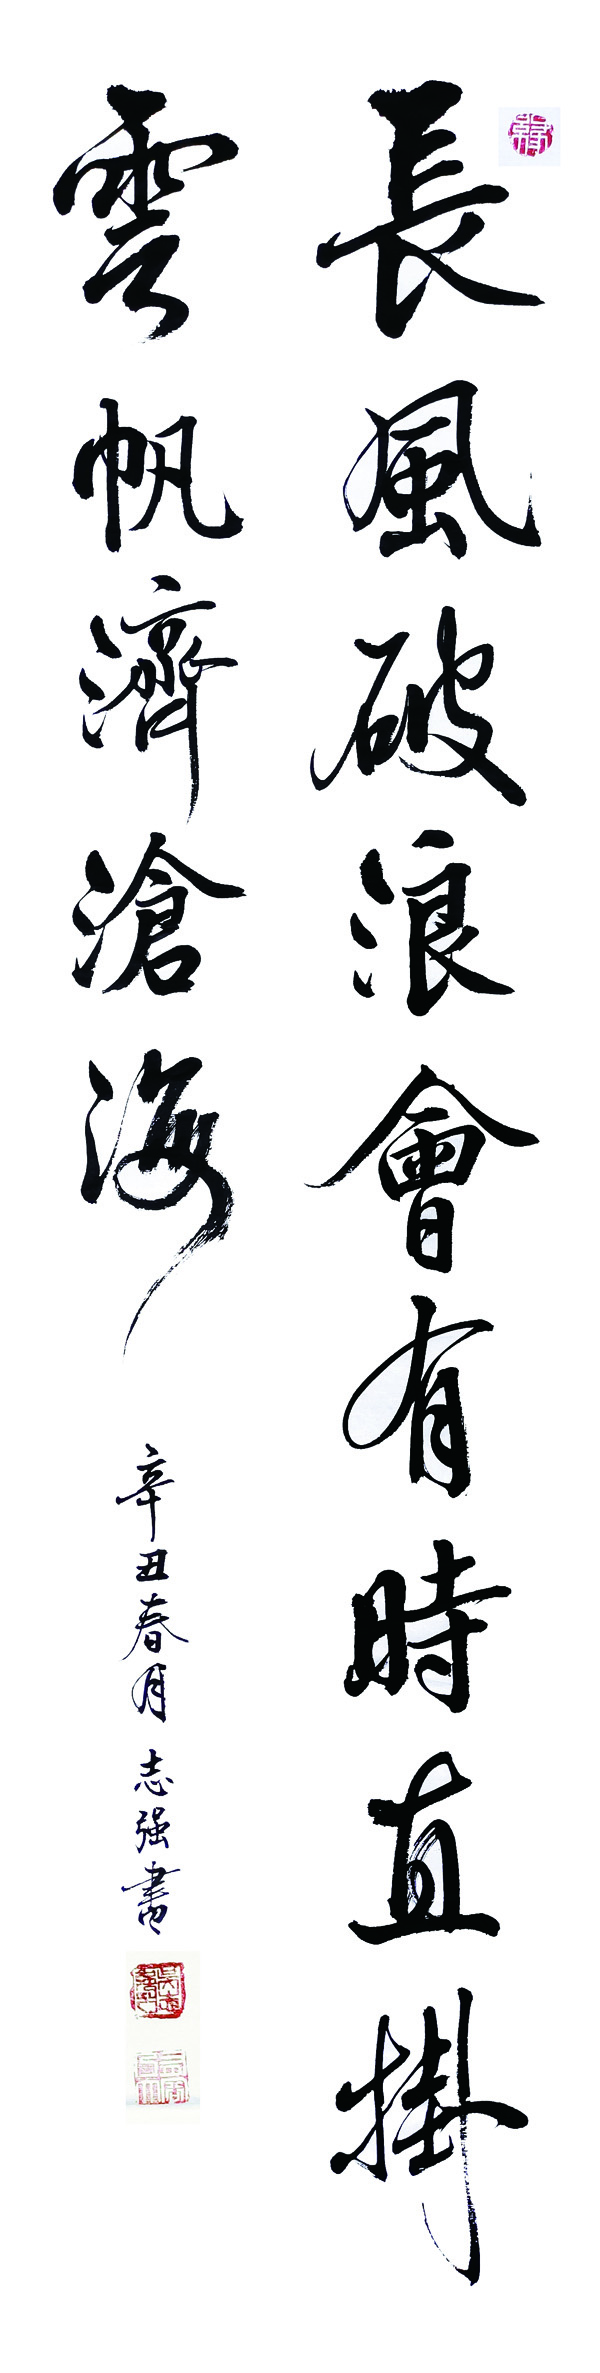 長風破浪會有時直掛
雲帆濟滄海
辛丑春月志强書